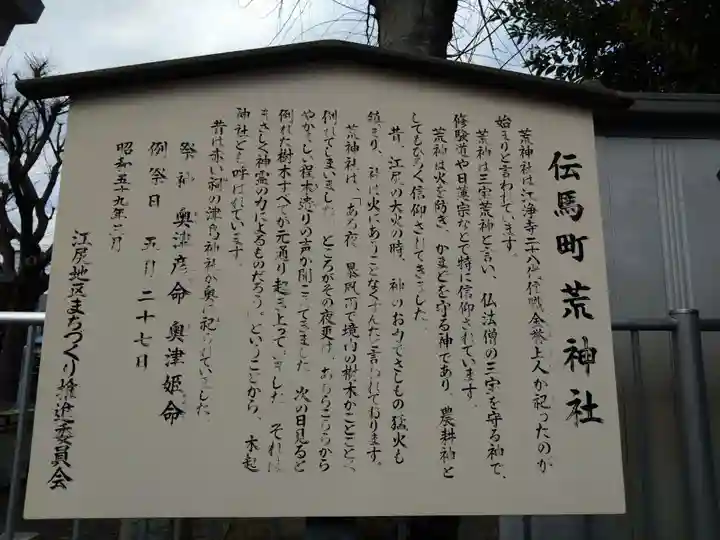 伝馬町 荒神社
荒神社は江浄寺二十八世住職金誉上人が祀ったのが
始まりと言われています。
荒神は三宝荒神と言い、仏法僧の三宝を守る神で、
修験道や日蓮宗などで特に信仰されています。
荒神は火を防ぎ、かまどを守る神であり、農耕神と
してもあつく信仰されてきました。
昔、江尻の大火の時、神のお力でさしもの猛火も
鎮まり、社は火にあうことなくすんだと言われております。
荒神社は、「ある夜、暴風雨で境内の樹木がことごとく
倒れてしまいました。ところがその夜更け、あちらこちらから
やかましい程木遣りの声が聞こえてきました。次の日見ると
倒れた樹木すべてが元通り起き上っていました。それは
まさしく神霊の力によるものだろう。」ということから、木起
神社とも呼ばれています。
昔は赤い祠の津島神社が奥に祀られていました。
祭神 奥津彦命 奥津姫命
例祭日 五月二十七日
昭和五十九年三月
江尻地区まちづくり推進委員会